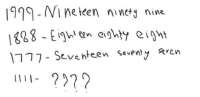 1999 - Nineteen ninety nine
1888 - Eighteen eighty eight
1777 - Seventeen seventy seven
1111 - ????